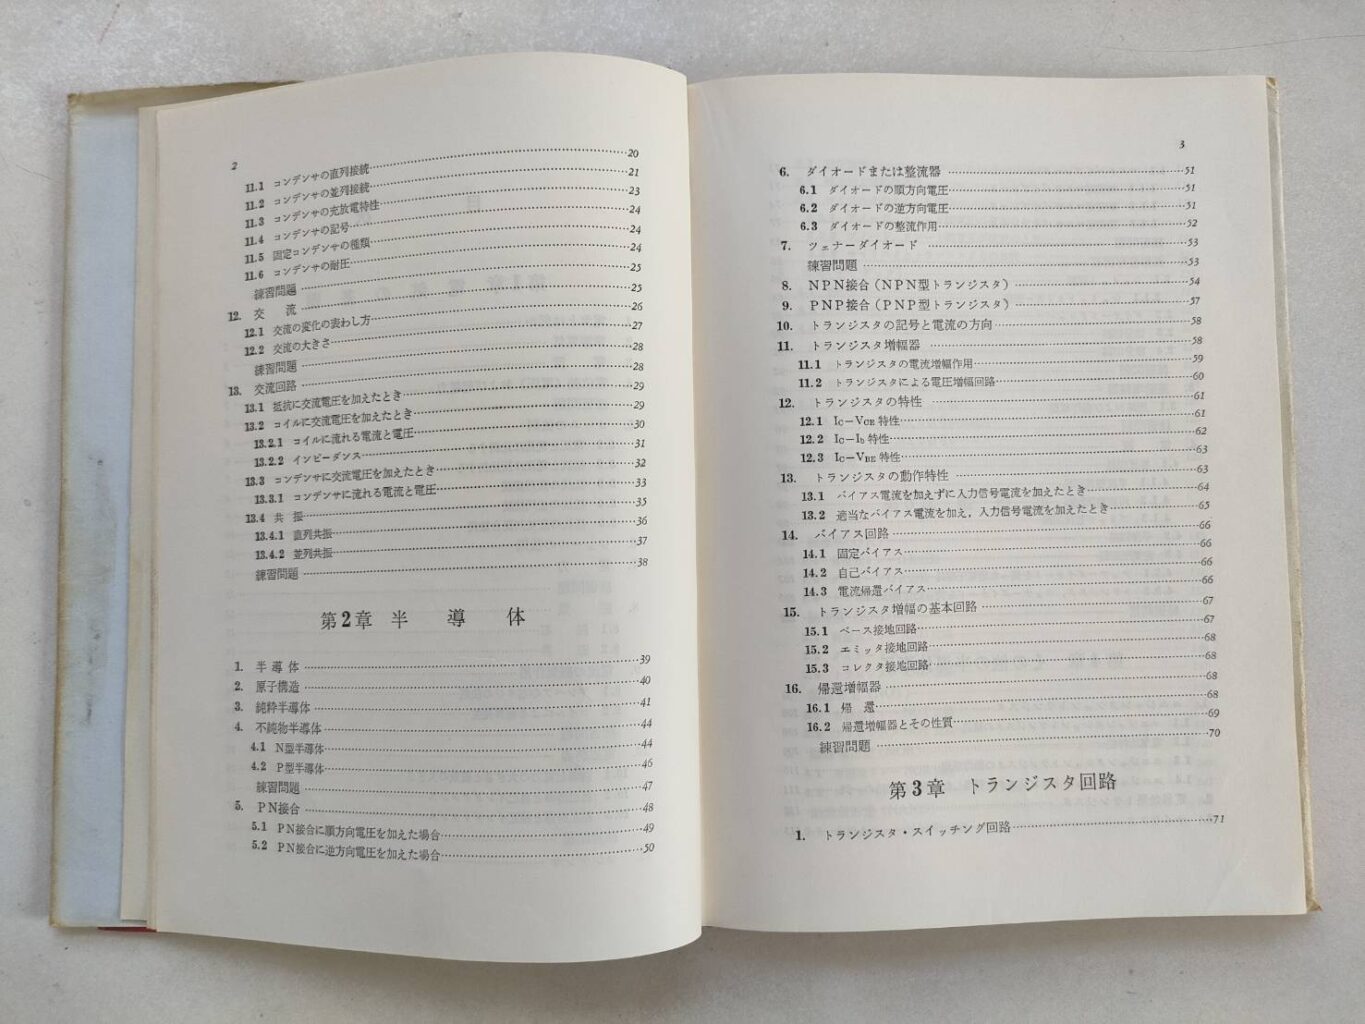 2
11.1 コンデンサの直列接続 20
11.2 コンデンサの並列接続 21
11.3 コンデンサの充放電特性 23
11.4 コンデンサの記号 24
11.5 固定コンデンサの種類 24
11.6 コンデンサの耐圧 24
練習問題 25
12. 交流 25
12.1 交流の変化の表わし方 26
12.2 交流の大きさ 27
練習問題 28
13. 交流回路 28
13.1 抵抗に交流電圧を加えたとき 29
13.2 コイルに交流電圧を加えたとき 29
13.2.1 コイルに流れる電流と電圧 30
13.2.2 インピーダンス 31
13.3 コンデンサに交流電圧を加えたとき 32
13.3.1 コンデンサに流れる電流と電圧 33
13.4 共振 35
13.4.1 直列共振 36
13.4.2 並列共振 37
練習問題 38
第2章 半導体
1. 半導体 39
2. 原子構造 40
3. 純粋半導体 41
4. 不純物半導体 44
4.1 N型半導体 44
4.2 P型半導体 46
練習問題 47
5. PN接合 48
5.1 PN接合に順方向電圧を加えた場合 49
5.2 PN接合に逆方向電圧を加えた場合 50
3
6. ダイオードまたは整流器 51
6.1 ダイオードの順方向電圧 51
6.2 ダイオードの逆方向電圧 51
6.3 ダイオードの整流作用 52
7. ツェナーダイオード 53
練習問題 53
8. NPN接合(NPN型トランジスタ) 54
9. PNP接合(PNP型トランジスタ) 57
10. トランジスタの記号と電流の方向 58
11. トランジスタ増幅器 58
11.1 トランジスタの電流増幅作用 59
11.2 トランジスタによる電圧増幅回路 60
12. トランジスタの特性 61
12.1 IC−VCE 特性 61
12.2 IC−Ib 特性 62
12.3 IC−VBE 特性 63
13. トランジスタの動作特性 63
13.1 バイアス電流を加えずに入力信号電流を加えたとき 64
13.2 適当なバイアス電流を加え，入力信号電流を加えたとき 65
14. バイアス回路 66
14.1 固定バイアス 66
14.2 自己バイアス 66
14.3 電流帰還バイアス 66
15. トランジスタ増幅の基本回路 67
15.1 ベース接地回路 67
15.2 エミッタ接地回路 68
15.3 コレクタ接地回路 68
16. 帰還増幅器 68
16.1 帰還 68
16.2 帰還増幅器とその性質 69
練習問題 70
第3章 トランジスタ回路
1. トランジスタ・スイッチング回路 71